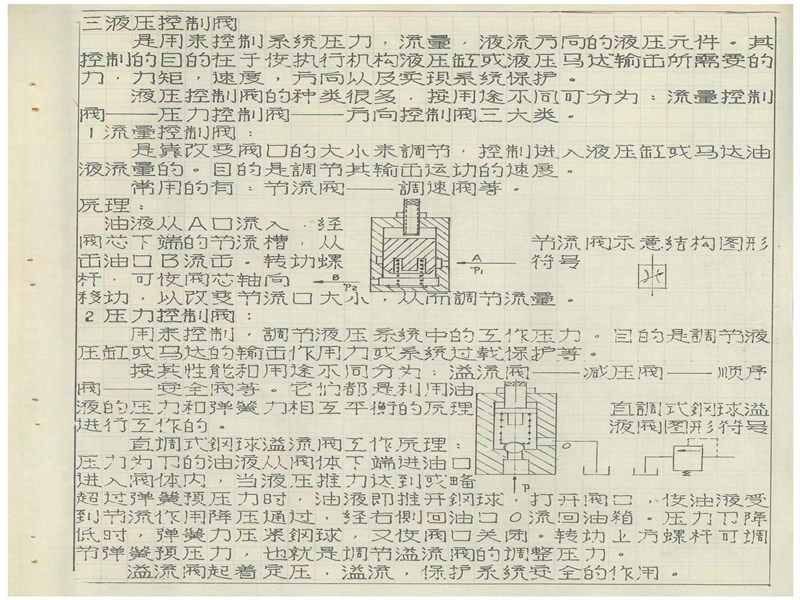 三液压控制阀
是用来控制系统压力，流量，液流方向的液压元件。其
控制的目的在于使执行机构液压缸或液压马达输出所需要的
力，力矩，速度，方向以及实现系统保护。
液压控制阀的种类很多，按用途不同可分为：流量控制
阀——压力控制阀——方向控制阀三大类。
1 流量控制阀：
是靠改变阀口的大小来調节，控制进入液压缸或马达油
液流量的。目的是調节其输出运动的速度。
常用的有：节流阀——調速阀等。
原理：
油液从A口流入，经
阀芯下端的节流槽，从
出油口B流出。转动螺
杆，可使阀芯轴向
移动，以改变节流口大小，从而調节流量。
A
P1
B
P2
节流阀示意结构图形
符号
2 压力控制阀：
用来控制，調节液压系统中的工作压力。目的是調节液
压缸或马达的输出作用力或系统过载保护等。
按其性能和用途不同分为：溢流阀——减压阀——顺序
阀——安全阀等。它们都是利用油
液的压力和弹簧力相互平衡的原理
进行工作的。
直调式钢球溢流阀工作原理：
压力为P的油液从阀体下端进油口
进入阀体内，当液压推力达到或略
超过弹簧预压力时，油液即推开钢球，打开阀口，使油液受
到节流作用降压通过，经右侧回油口O流回油箱。压力P降
低时，弹簧力压紧钢球，又使阀口关闭。转动上方螺杆可調
节弹簧预压力，也就是調节溢流阀的調整压力。
溢流阀起着定压，溢流，保护系统安全的作用。
O
P
直調式钢球溢
流阀图形符号